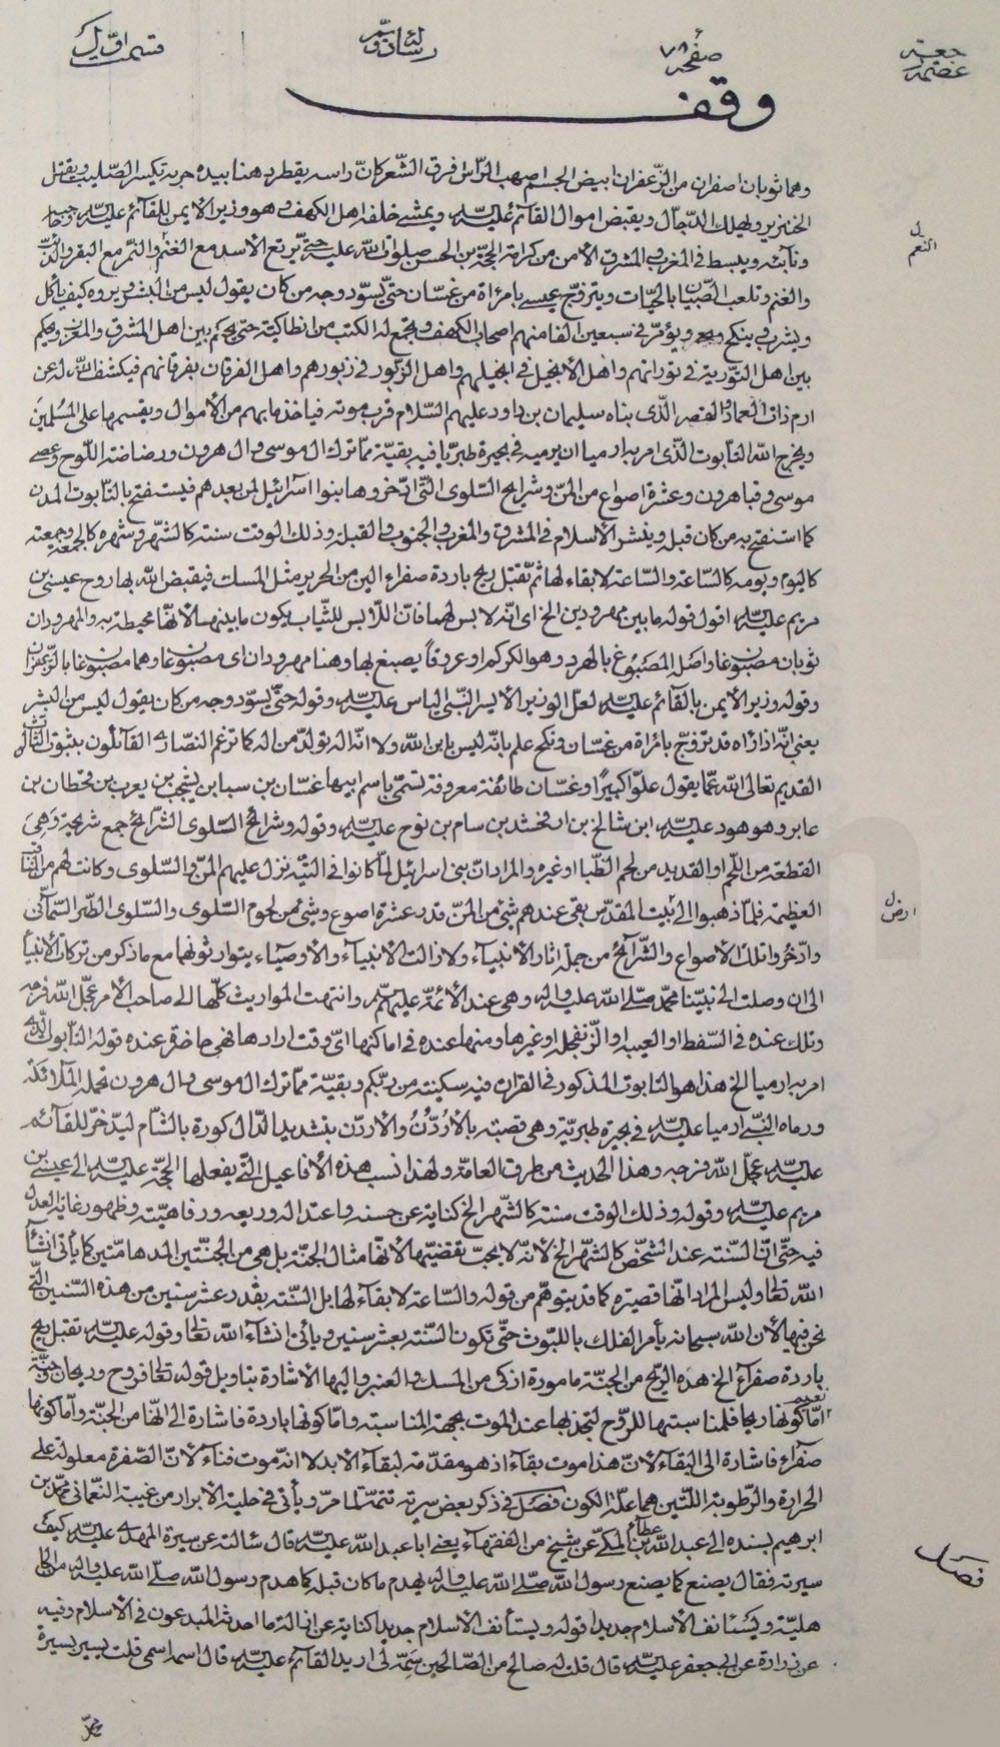 جعة عصمة
صفحه ٧٨
رسالة وسيم
قسمت اول
وقف
وهما ثوبان اصفران من الزعفران ابيض الجسم اصهب الرأس فرق الشعر كانّ راسه يقطر دهنا بيده حربة يكسر الصليب ويقتل
الخنزير ويهلك الدجّال ويقبض اموال القآئم عليه السلام ويمشي خلفه اهل الكهف وهو وزير الايمن للقآئم عليه السلام وحاجبه
ل النعم
ونآئبه ويبسط في المغرب والمشرق الأمن من كرامة الحجّة بن الحسن صلوات الله عليه حتى يرتع الاسد مع الغنم والنمر مع البقر والذئب
والغنم وتلعب الصبيان بالحيّات ويتزوّج عيسى بامرأة من غسّان حتى يسوّد وجه من كان يقول ليس من البشر ويروه كيف ياكل
ويشرب وينكح ويؤمّر في سبعين الفا منهم اصحاب الكهف ويجمع له الكتب من انطاكية حتى يحكم بين اهل المشرق والمغرب ويحكم
بين اهل التورية في توراتهم واهل الأنجيل في انجيلهم واهل الزبور في زبورهم واهل الفرقان بفرقانهم فيكشف الله له عن
ارم ذات العماد والقصر الذي بناه سليمان بن داود عليهم السلام قرب موته فياخذ ما بهم من الأموال ويقسمها على المسلمين
ويخرج الله التابوت الذي امر به ارميا ان يرميه في بحيرة طبريا فيه بقيّة مما ترك ال موسى وال هرون ورضاضة اللوح وعصى
موسى وقبا هرون وعشرة اصواع من المنّ وشرايح السلوى التي ادّخروها بنوا اسرآئيل لمن بعدهم فيستفتح بالتابوت المدن
كما استفتح به من كان قبله وينشر الأسلام في المشرق والمغرب والجنوب والقبلة وذلك الوقت سنته كالشهر وشهره كالجمعة وجمعته
كاليوم ويومه كالساعة والساعة لا بقاء لها ثم تقبل ريح باردة صفراء الين من الحرير مثل المسك فيقبض الله بها روح عيسى بن
مريم عليه السلام اقول قوله ما بين مهرودين الخ اى انّه لابس لهما فان اللابس للثياب يكون ما بينهما لانّها محيطة به والمهرودان
ثوبان مصبوغا واصل المصبوغ بالهرد وهو الكركم او عروقاً يصبغ بها وهنا مهرودان اى مصبوغا وهما مصبوغا بالزعفران
وقوله وزير الايمن بالقآئم عليه السلام لعلّ الوزير الايسر النبي الياس عليه السلام وقوله حتى يسوّد وجه من كان يقول ليس من البشر
يعني انّه اذا رآه قد تزوّج بامرأة من غسّان ونكح علم بانّه ليس بابن الله ولا انّ اله تولّد من اله كما تزعم النصارى القآئلون بثبوت الثالث
القديم تعالى الله عمّا يقول علوّا كبيرًا وغسّان طائفة معروفة تسمّى باسم ابيها غسّان بن سبا بن يشجب بن يعرب بن قحطان بن
عابر وهو هود عليه السلام ابن شالخ بن ارفخشد بن سام بن نوح عليه السلام وقوله وشرائح السلوى الشرائح جمع شريحة وهي
القطعة من اللحم او القديد من لحم الظبا او غيره والمراد انّ بني اسرائيل لمّا كانوا في التيه نزل عليهم المنّ والسلوى وكانت لهم من
ارض ل
العظيمة فلمّا ذهبوا الى بيت المقدّس بقي عندهم شئ من المنّ قدر عشرة اصوع وشئ من لحوم السلوى والسلوى الطير السمآني
وادّخروا تلك الأصواع والشرآيح من جملة اثار الأنبياء ولا زالت الانبيآء والأوصيآء يتوارثونها مع ما ذكر من تركات الأنبيآ
الى ان وصلت الى نبيّنا محمّد صلّى الله عليه وآله وهي عند الأئمة عليهم السلام وانتهت المواريث كلّها الى صاحب الأمر عجّل الله فرجه
وتلك عنده في السفط او العيبة او الزنفجلة او غيرها ومنها عنده في اماكنها اى وقت ارادها فهي حاضرة عنده قوله التابوت الذي
امر به ارميا الخ هذا هو التابوت المذكور في القران فيه سكينة من ربّكم وبقيّة مما ترك ال موسى وال هرون تحمله الملآئكة
ورماه النبي ارميا عليه السلام في بحيرة طبريّة وهي قصبة بالأردُنّ والأردن بتشديد الدال كورة بالشام ليدّخر للقآئم
عليه السلام عجّل الله فرجه وهذا الحديث من طرق العامة ولهذا نسب هذه الأفاعيل التي يفعلها الحجة عليه السلام الى عيسى بن
مريم عليه السلام وقوله وذلك الوقت سنته كالشهر الخ كناية عن حسنه واعتداله وربيعه ورفاهيته وظهور غاية العدل
فيه حتى انّ السنة عند الشخص كالشهر الخ لأنّه لا يحبّ تقضيّها لأنّها مثال الجنّة بل هي من الجنّتين المدهامّتين كما يأتي انشآء
الله تعالى وليس المراد انّها قصيرة كما قد يتوهّم من قوله والساعة لا بقآء لها بل السنة بقدر عشر سنين من هذه السنين التي
نحن فيها لأن الله سبحانه يأمر الفلك باللبوث حتى تكون السنة بعشر سنين ويأتي انشآء الله تعالى وقوله عليه السلام تقبل ريح
باردة صفرآء الخ هذه الريح من الجنّة مامورة اذكى من المسك والعنبر واليها الأشارة بتاويل قوله تعالى فروح وريحان وجنّة نعيم
امّا كونها ريحا فلمناسبتها للروح لتجذبها عند الموت بجهة المناسبة وامّا كونها باردة فاشارة الى انّها من الجنّة وامّا كونها
صفرآء فاشارة الى البقآء لأنّ هذا موت بقآء اذ هو مقدّمة لبقآء الأبد لا انّه موت فناء لأنّ الصفرة معلولة على
الحرارة والرطوبة اللتين هما علّة الكون فصل في ذكر بعض سيرته تتمة لما مر ويأتي في حلية الأبرار من غيبة النعماني محمد بن
فصل
ابرهيم بسنده الى عبد الله بن عطآء المكّي عن شيخ من الفقهآء يعني ابا عبد الله عليه السلام قال سألته عن سيرة المهدي عليه السلام كيف
سيرته فقال يصنع كما يصنع رسول الله صلّى الله عليه وآله يهدم ما كان قبله كما هدم رسول الله صلّى الله عليه وآله امر الجا
هليّة ويستانف الأسلام جديدا قوله ويستأنف الأسلام جديدا كناية عن ازالة ما احدثه المبدعون في الاسلام وفيه
عن زرارة عن ابي جعفر عليه السلام قال قلت له صالح من الصالحين سمّه لي اريد القآئم عليه السلام قال اسمه اسمي قلت يسير بسيرة
محمّد